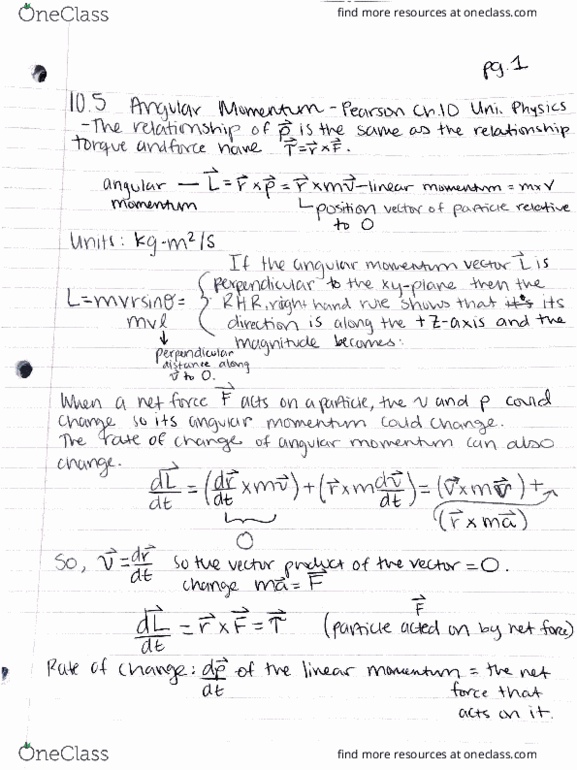 OneClass find more resources at oneclass.com
pg.1
10.5 Angular Momentum - Pearson Ch.10 Uni. Physics
-The relationship of p⃗ is the same as the relationship
torque and force have τ⃗=r⃗×F⃗.
angular — L⃗=r⃗×p⃗=r⃗×mv⃗-linear momentum=m×v
momentum
position vector of particle relative
to O
Units: kg-m²/s
If the angular momentum vector L⃗ is
perpendicular to the xy-plane then the
RHR, right hand rule shows that it's its
direction is along the +z-axis and the
magnitude becomes:
L=mvrsinθ=
mvl
perpendicular
distance along
v⃗ to O.
When a net force F⃗ acts on a particle, the v and p could
change so its angular momentum could change.
The rate of change of angular momentum can also
change.
dL⃗/dt = (dr⃗/dt × mv⃗) + (r⃗ × m dv⃗/dt) = (v⃗ × mv⃗) +
(r⃗ × ma⃗)
0
So, v⃗ = dr⃗/dt so the vector product of the vector = 0.
change ma⃗ = F⃗
dL⃗/dt = r⃗ × F⃗ = τ⃗ (particle acted on by net force) F⃗
Rate of change: dp⃗/dt of the linear momentum = the net
force that
acts on it.
OneClass find more resources at oneclass.com